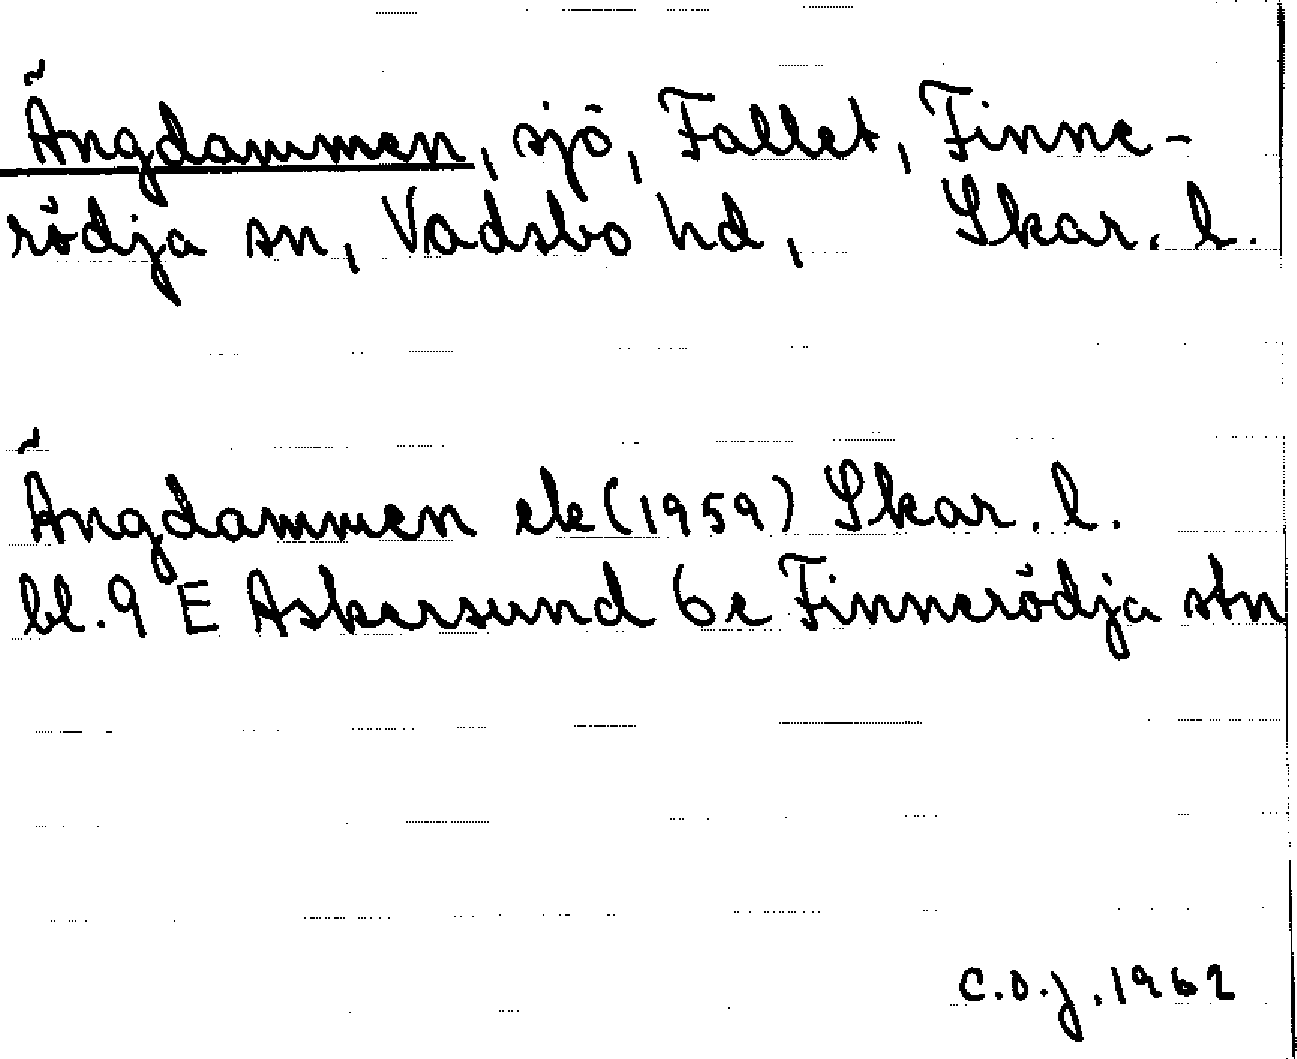 Ängdammen, sjö, Fallet, Finne-
rödja sn, Vadsbo hd, Skar. l.
Ängdammen ek (1959) Skar. l.
bl. 9 E Askersund 6e Finnerödja stn
C.O.J. 1962